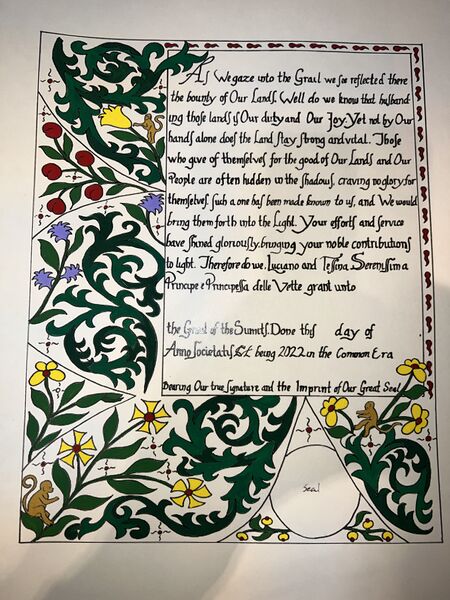 As We gaze into the Grail we see reflected there
the bounty of Our Lands. Well do we know that husband
ing those lands is Our duty and Our Joy. Yet not by Our
hands alone does the Land stay strong and vital. Those
who give of themselves for the good of Our Lands and Our
People are often hidden in the shadows, craving no glory for
themselves such a one has been made known to us, and We would
bring them forth into the Light. Your efforts and service
have shined gloriously, bringing your noble contributions
to light. Therefore do we, Luciano and Tessina, Serenissima
Principe e Principessa delle Vette grant unto
the Grant of the Summits. Done this day of
Anno Societatis being 2022 in the Common Era
Bearing Our true signature and the Imprint of Our Great Seal
Seal